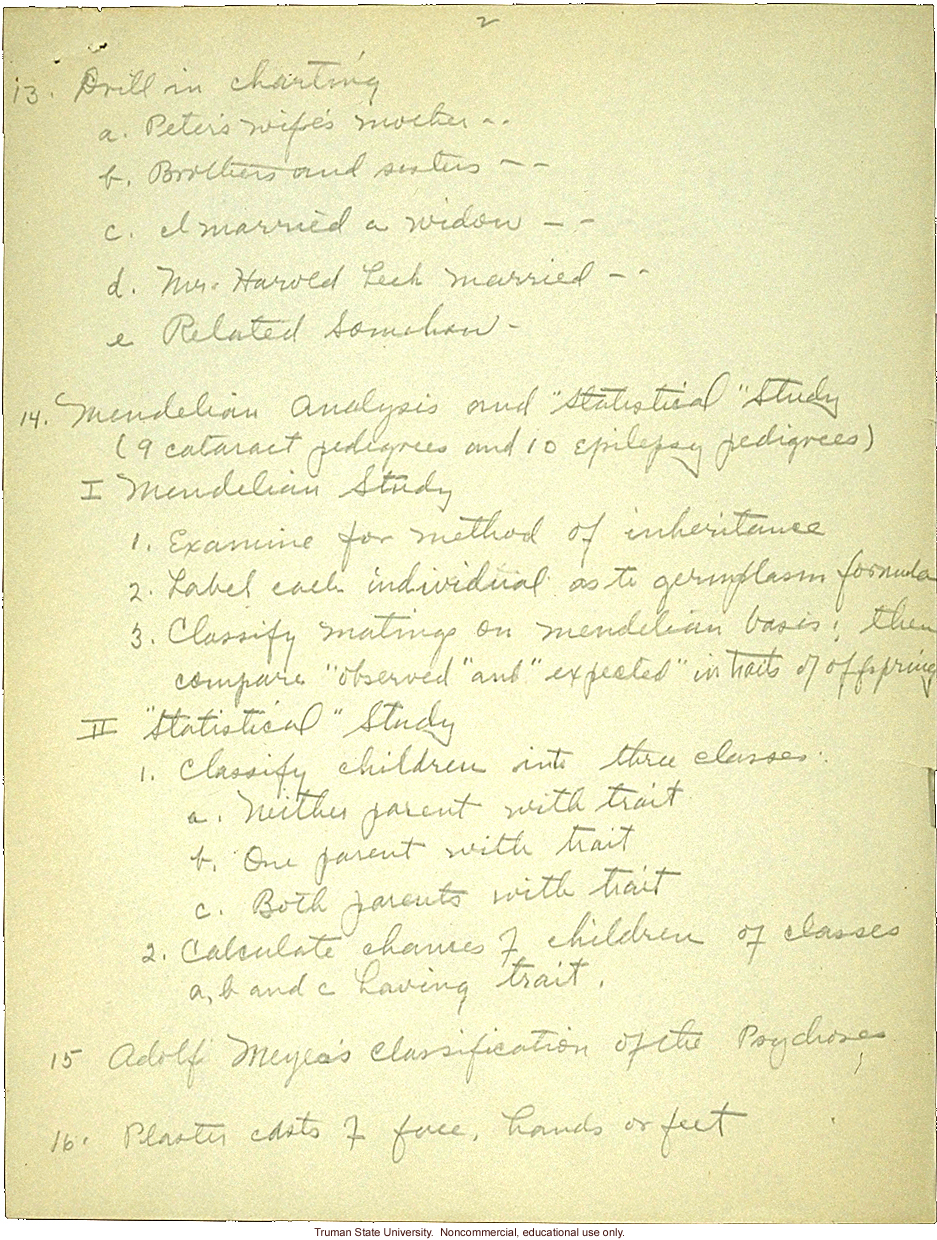 2
13. Drill in charting
a. Peter's wife's mother - -
b. Brothers and sisters - -
c. I married a widow - -
d. Mr. Harold married - -
e Related somehow -
14. Mendelian Analysis and "Statistical" Study
(9 cataract pedigrees and 10 epilepsy pedigrees)
I Mendelian Study
1. Examine for method of inheritance
2. Label each individual as to germplasm formula
3. Classify matings on mendelian basis; then
compare "observed" and "expected" in traits of offspring
II "Statistical" Study
1. Classify children into three classes.
a. Neither parent with trait
b. One parent with trait
c. Both parents with trait
2. Calculate chances of children of classes
a, b and c having trait.
15 Adolf Meyer's classification of the Psychoses
16. Plaster casts of face, hands or feet
Truman State University. Noncommercial, educational use only.